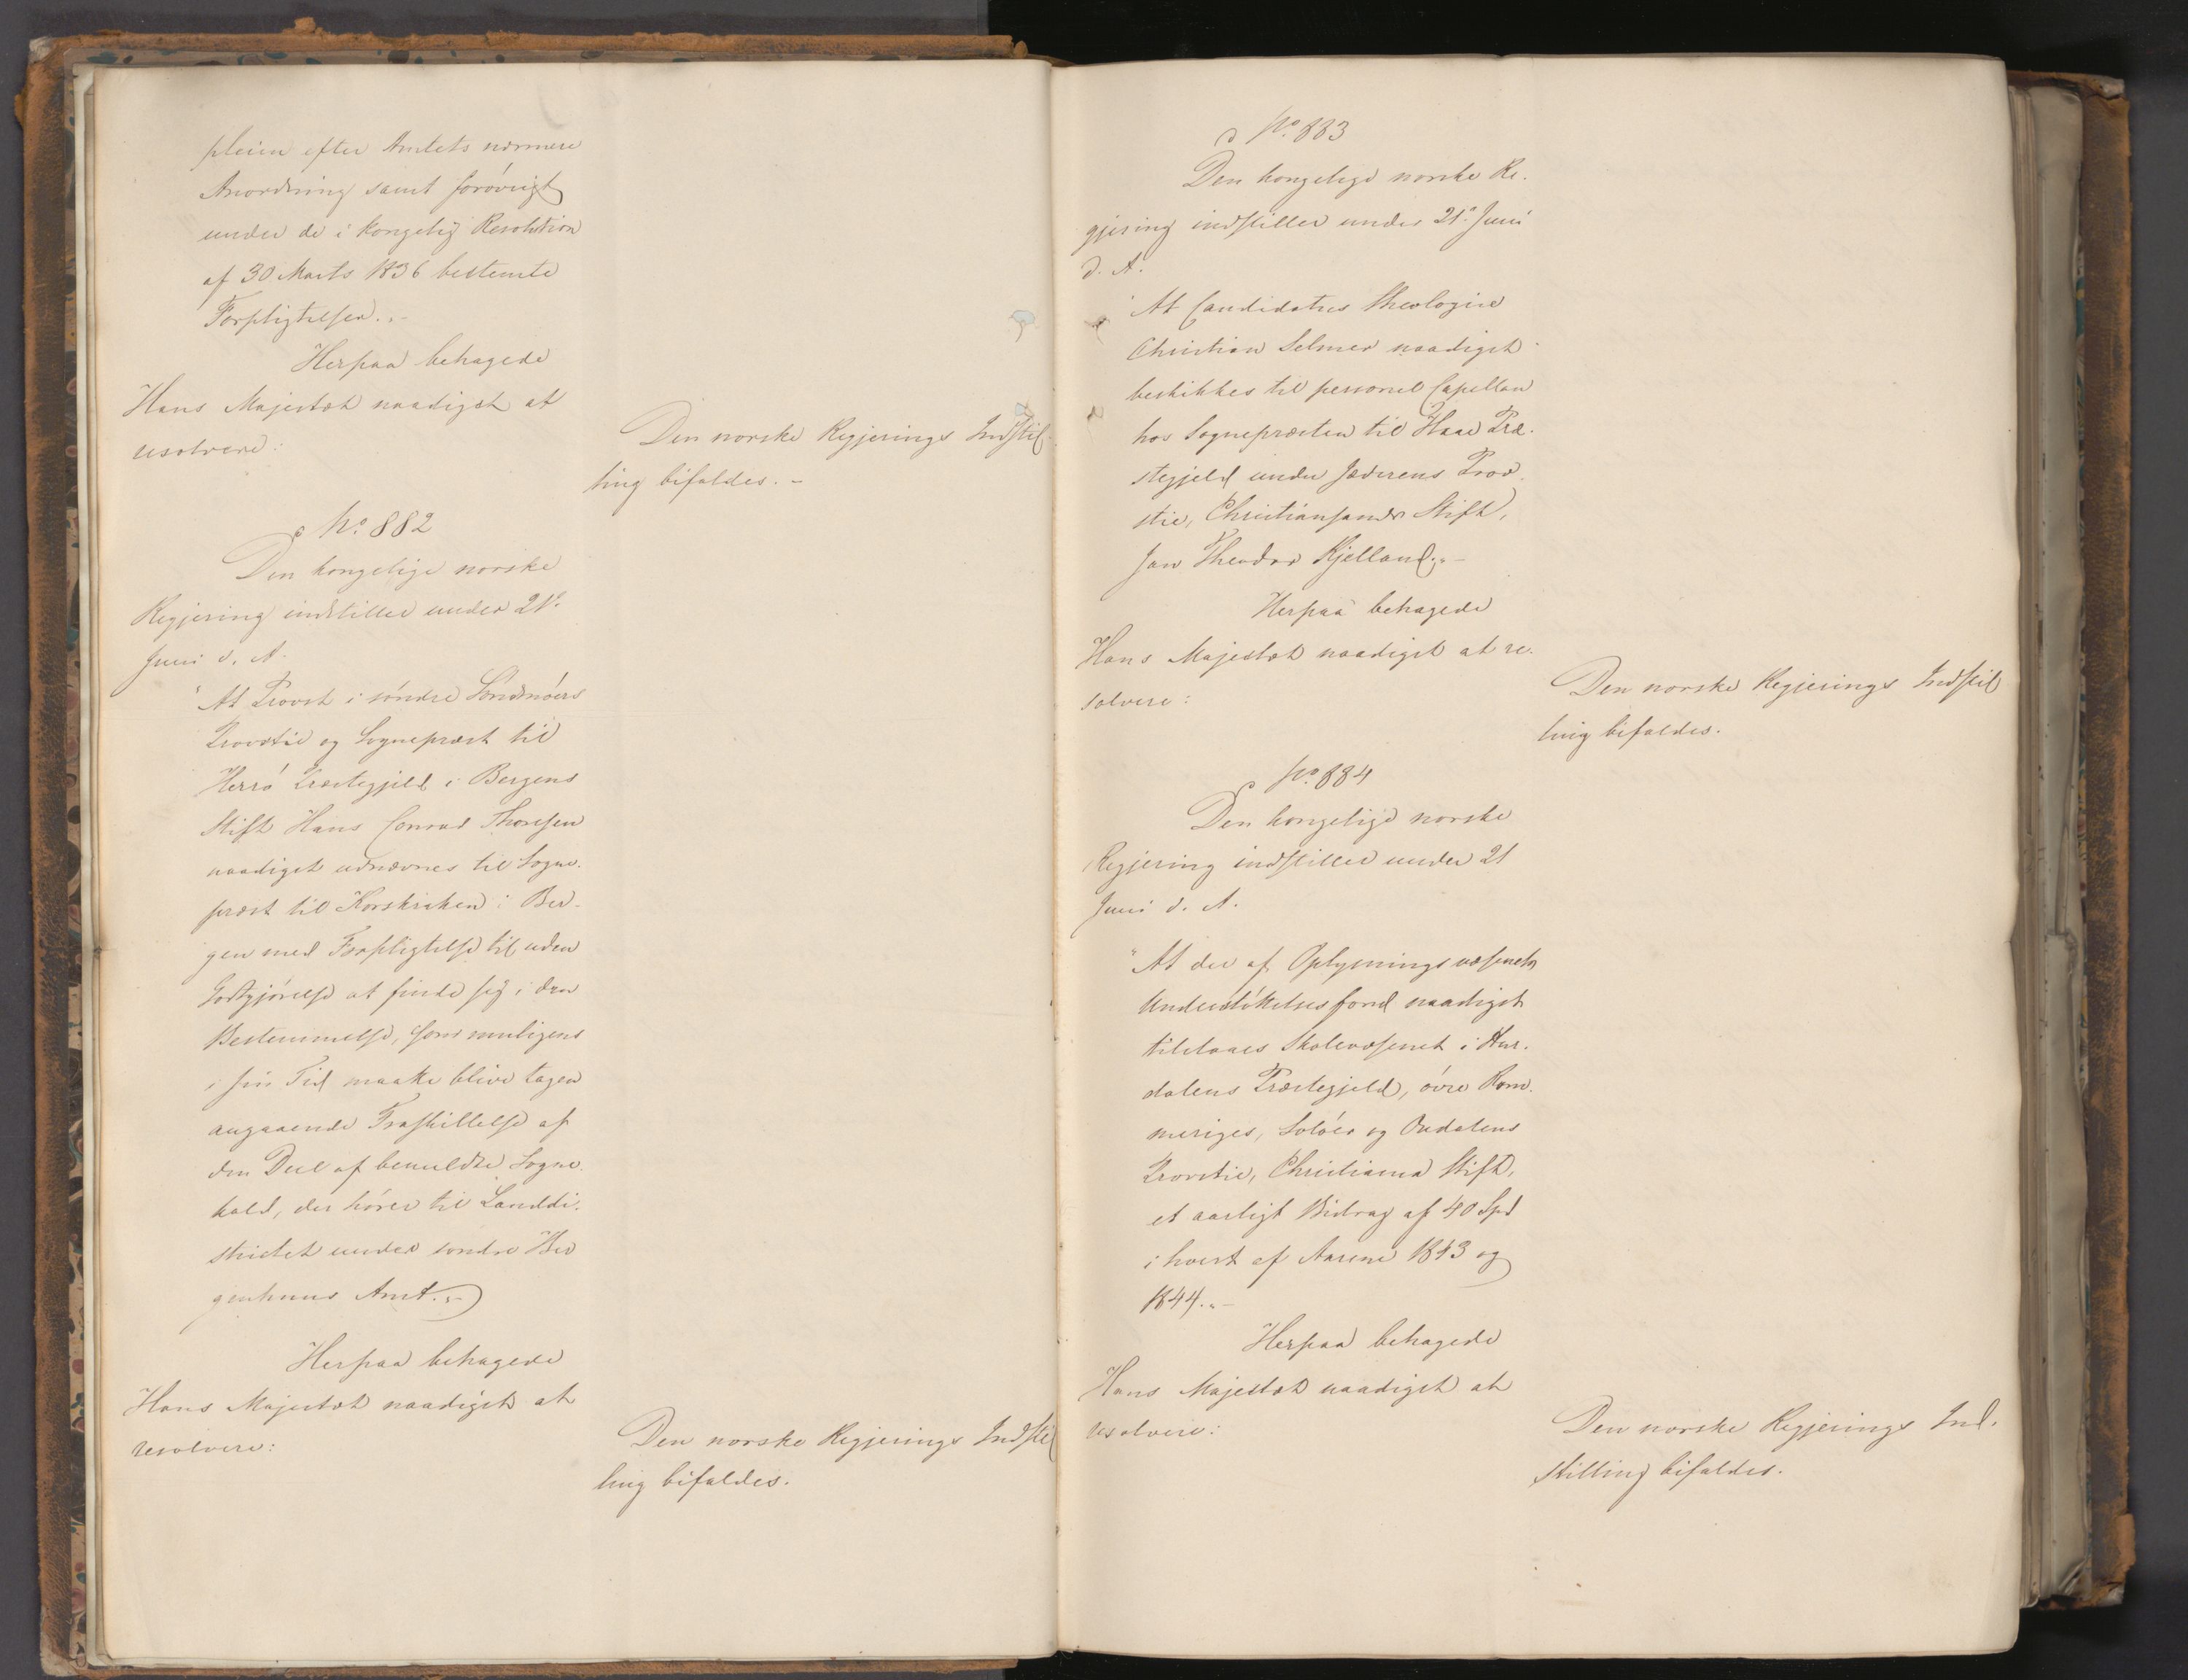 pleien efter Amtets nærmere
Anordning samt forøvrigt
under de i kongelig Resolution
af 30 Marts 1836 bestemte
Forpligtelser.„-
Herpaa behagede
Hans Majestæt naadigst at
resolvere:
Den norske Regjerings Indstil-
ling bifaldes. -
No. 882
Den kongelige norske
Regjering indstiller under 21de
Juni d. A.
"At Provst i søndre Søndmøers
Provstie og Sognepræst til
Herrø Præstegjeld i Bergens
Stift Hans Conrad Thoresen
naadigst udnævnes til Sogne-
præst til Korskirken i Ber-
gen med Forpligtelse til uden
Godtgjørelse at finde sig i den
Bestemmelse, som muligens
i sin Tid maatte blive tagen
angaaende Fraskillelse af
den Deel af bemeldte Sogne-
kald, der hører til Landdi-
strictet under søndre Ber
genhuus Amt.„-
Herpaa behagede
Hans Majestæt naadigst at
resolvere:
Den norske Regjerings Indstil
ling bifaldes.
No. 883
Den kongelige norske Re-
gjering indstiller under 21de Juni
d. A.
"At Candidatus theologiæ
Christian Selmer naadigst
beskikkes til personel Capellan
hos Sognepræsten til Haae Præ-
stegjeld under Jæderens Prov-
stie, Christiansands Stift,
Jan Theodor Kjelland.„-
Herpaa behagede
Hans Majestæt naadigst at re-
solvere:
Den norske Regjerings Indstil
ling bifaldes.
No. 884
Den kongelige norske
Regjering indstiller under 21
Juni d. A.
"At der af Oplysningsvæsenets
Understøttelsesfond naadigst
tilstaaes Skolevæsenet i Hur-
dalens Præstegjeld, øvre Rom-
meriges, Soløer og Oudalens
Provstie, Christiania Stift,
et aarligt Bidrag af 40 Spd
i hvert af Aarene 1843 og
1844.„-
Herpaa behagede
Hans Majestæt naadigst at
resolvere:
Den norske Regjerings Ind-
stilling bifaldes.